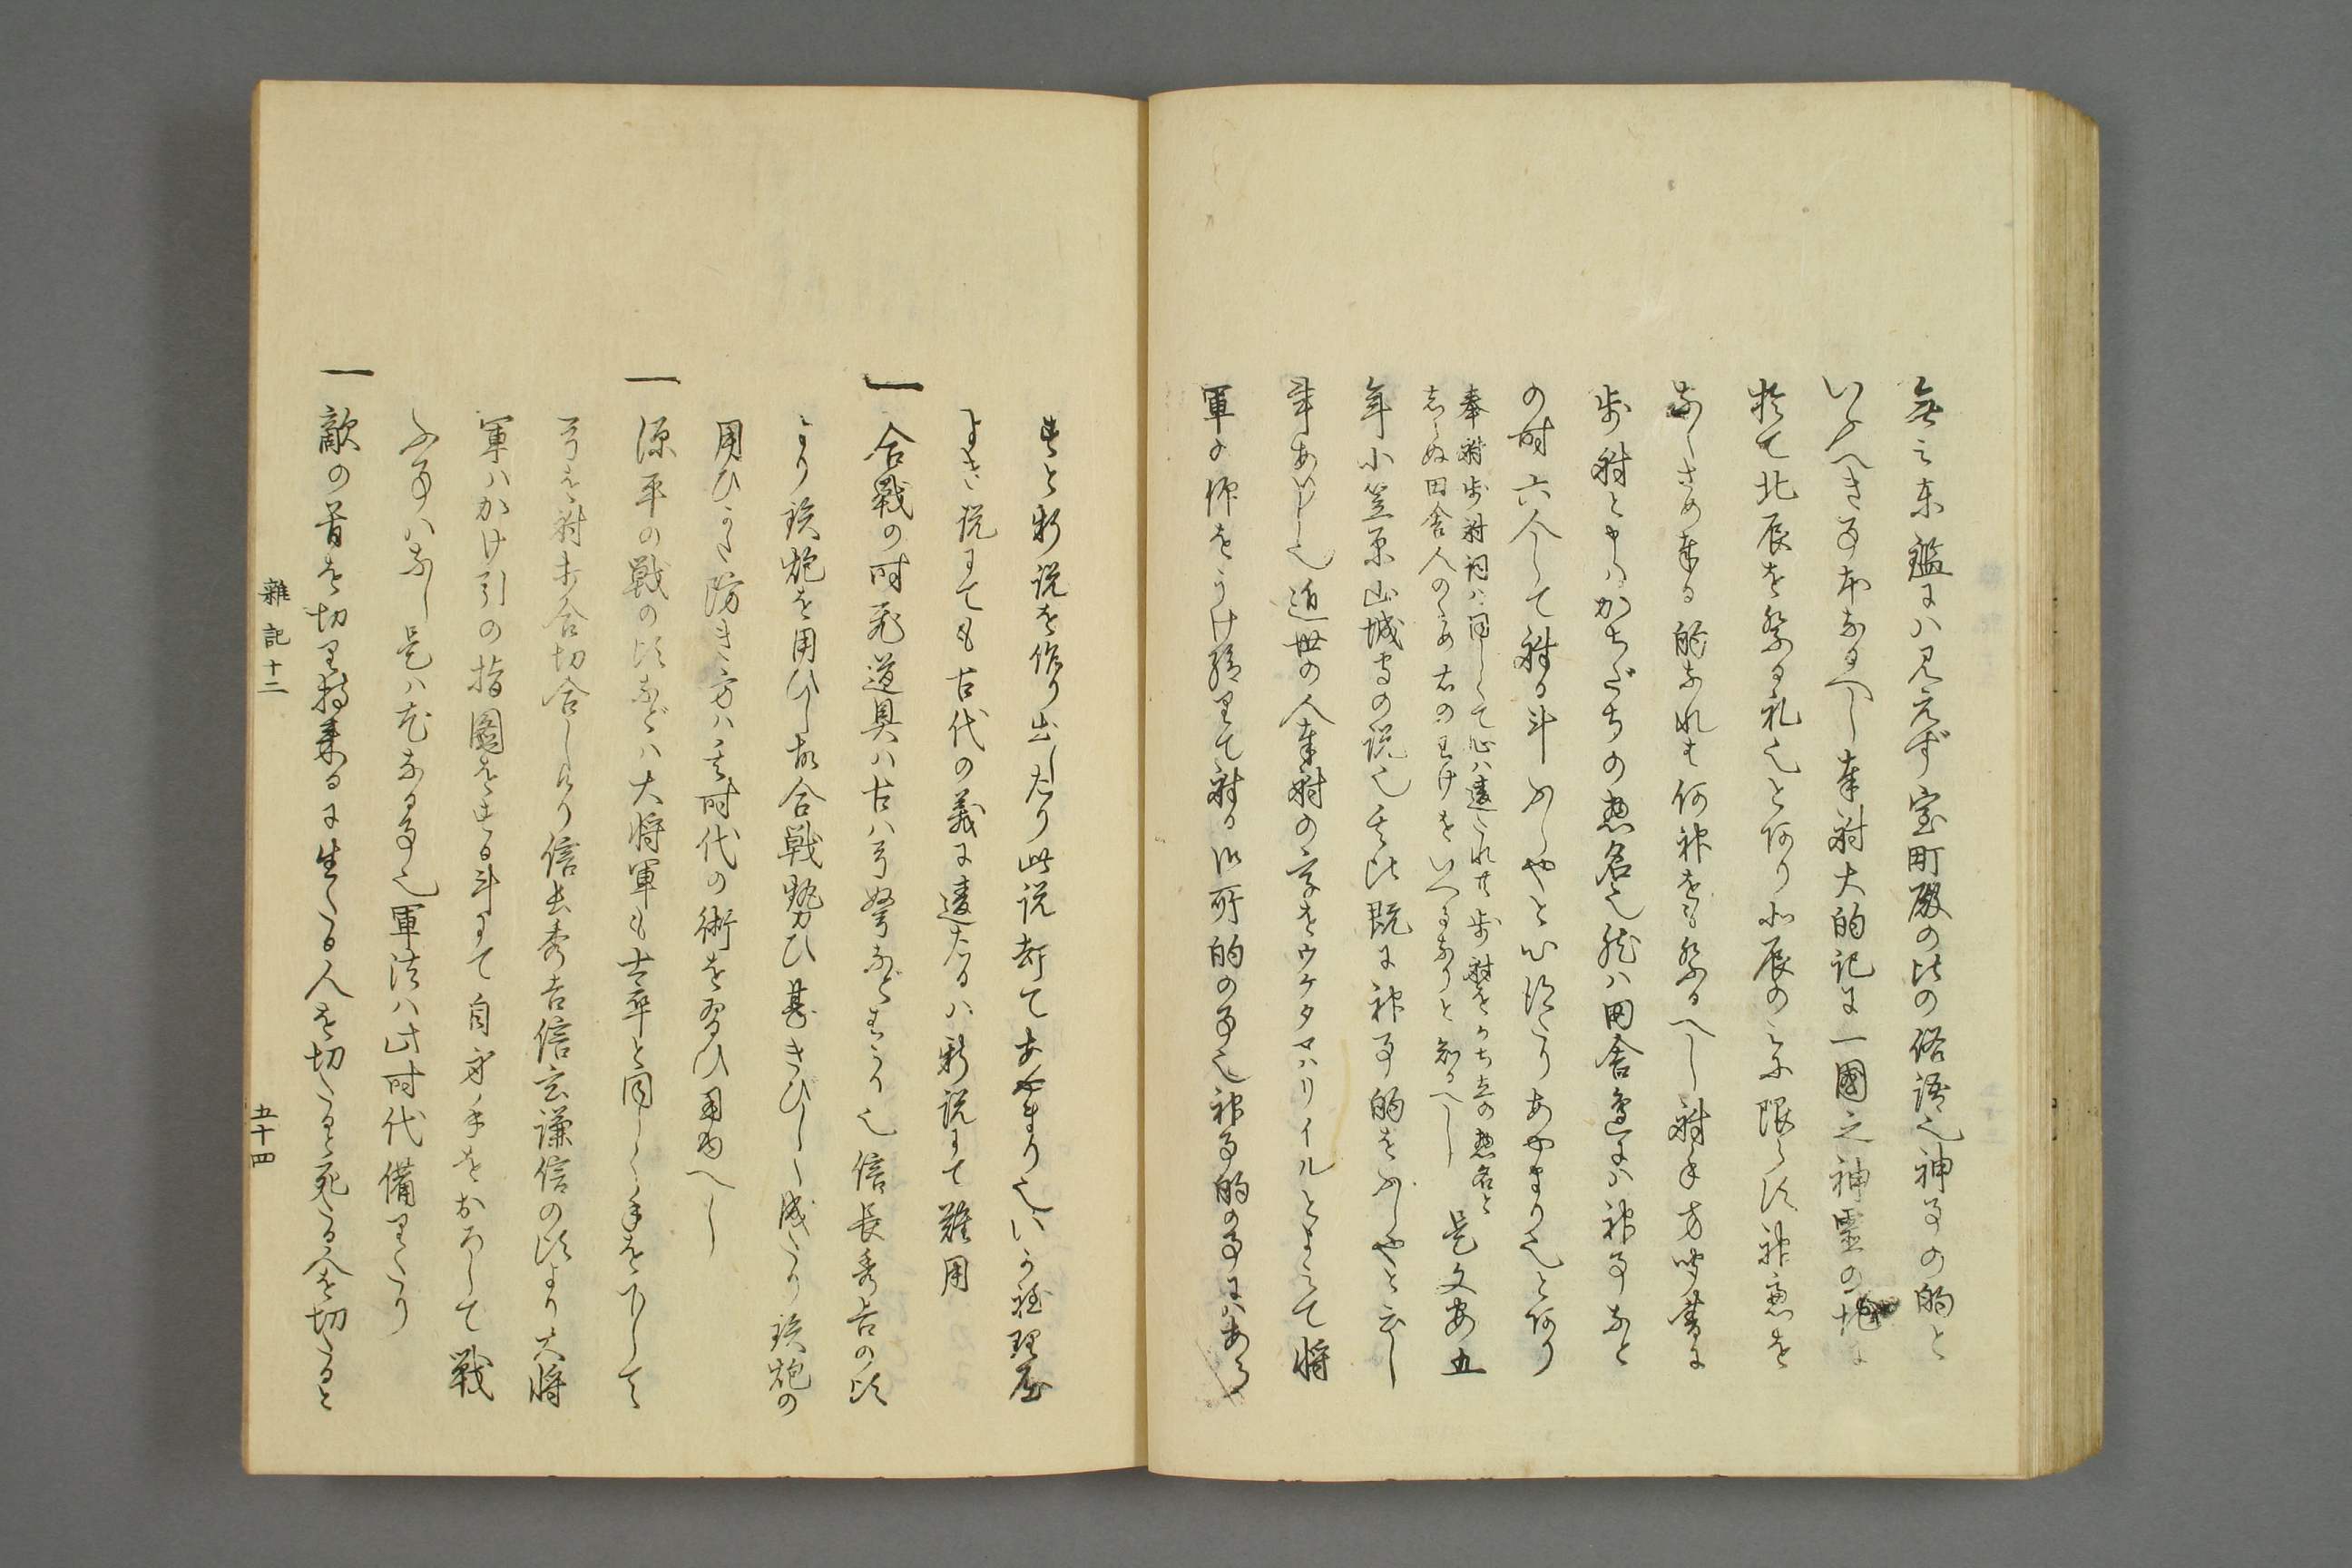 無之東鑑にハ見えず室町殿の比の俗語也神事の的と
いふへき事本なるへし奉射大的記に一國之神靈の地に
於て北辰を祭る礼也とあり北辰のミに限らす神慮を
なくさめ奉る的なれは何神をも祭るへし射手方聞書に
歩射と申ハかちだちの惣名也然ハ田舎邊にハ神事なと
の時六人して射る斗ぶしやと心得たりあやまり也とあり
奉射歩射詞ハ同しくて心ハ違たれ共歩射をかち立の惣名と
志らぬ田舎人のため右のわけをいへるなりと知るへし 是文安五
年小笠原山城守の説也其比既に神事的をぶしやと云し
事あり也近世の人奉射の字をウケタマハリイルとよミて将
軍の仰をうけ給りて射る御所的の事也神事的の事にハあら
すと新説を作り出したり此説却てあやまり也いかに理屈
よき説にても古代の義に違たるハ新説にて難用
一 合戦の時飛道具ハ古ハ弓弩なとはかり也信長秀吉の比
より鉄炮を用ひし故合戦勢ひ甚きびしく成たり鉄炮の
用ひかた防き方ハ其時代の術を習ひ用ゆへし
一 源平の戦の比などハ大将軍も士卒と同しく手を下して
弓を射太刀合切合したり信長秀吉信玄謙信の比より大将
軍ハかけ引の指圖をする斗にて自身手をおろして戦
ふ事ハなし是ハ尤なる事也軍法ハ此時代備りたり
一 敵の首を切り持来るに生たる人を切たると死たる人を切たると
雜記十二
五十四